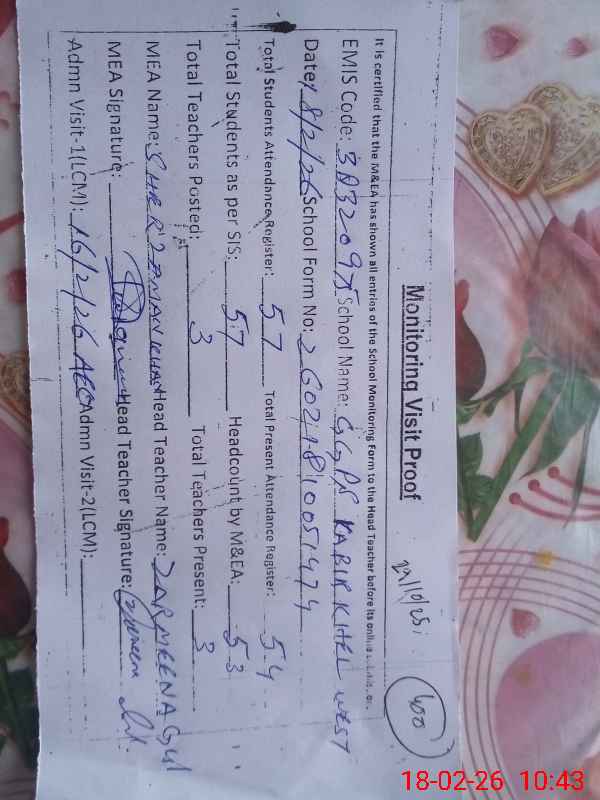 Monitoring Visit Proof
It is certified that the M&EA has shown all entries of the School Monitoring Form to the Head Teacher before its
EMIS Code: School Name: GGPS KABIR KHEL WEST
Date: 18/2/26 School Form No: 26021810051474
Total Students Attendance Register: 57 Total Present Attendance Register: 54
Total Students as per SIS: 57 Headcount by M&EA: 53
Total Teachers Posted: 3 Total Teachers Present: 3
MEA Name: Head Teacher Name: ZARMEENA Gul
MEA Signature: Head Teacher Signature:
Admn Visit-1(LCM): 16/2/26 Admn Visit-2(LCM):
400
18-02-26 10:43